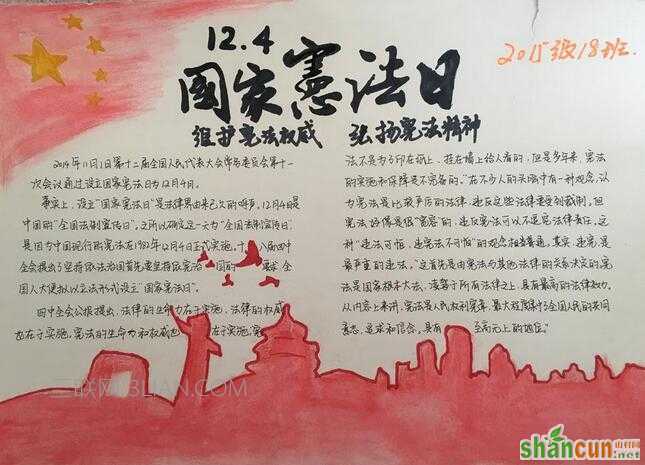 12.4
国家憲法日
2015级18班.
维护宪法权威 弘扬宪法精神
2014年11月1日第十二届全国人民代表大会常务委员会第十一
次会议通过设立国家宪法日为12月4日。
事实上,设立"国家宪法日"是法律界由来已久的呼声,12月4日是
中国的"全国法制宣传日"。之所以确定这一天为"全国法制宣传日",
是因为中国现行的宪法在1982年12月4日正式实施。十八届四中
全会提出了坚持依法治国首先要坚持依宪治国的要求 全
国人大便拟以立法形式设立"国家宪法日"。
四中全会公报提出,法律的生命力在于实施,法律的权威
也在于实施,宪法的生命力和权威也在于实施,宪
法不是为了印在纸上、挂在墙上给人看的,但是多年来,宪法
的实施和保障是不完备的。"在不少人的头脑中有一种观念,认
为宪法是比较严厉的法律,违反这些法律要受到裁制,但
宪法好像是很"宽容"的,违反宪法可以不追究法律责任。这
种"违法可怕,违宪法不可怕"的观念相当普遍,其实,违宪是
最严重的违法。"这首先是由宪法与其他法律的关系决定的,宪
法是国家根本大法,凌驾于所有法律之上,具有最高的法律效力,
从内容上来讲,宪法是人民权利宪章,最大程度集中了全国人民的共同
意志、追求和信念,具有至高无上的地位。"
三联网 3LIAN.COM
shancun
山村网
.net